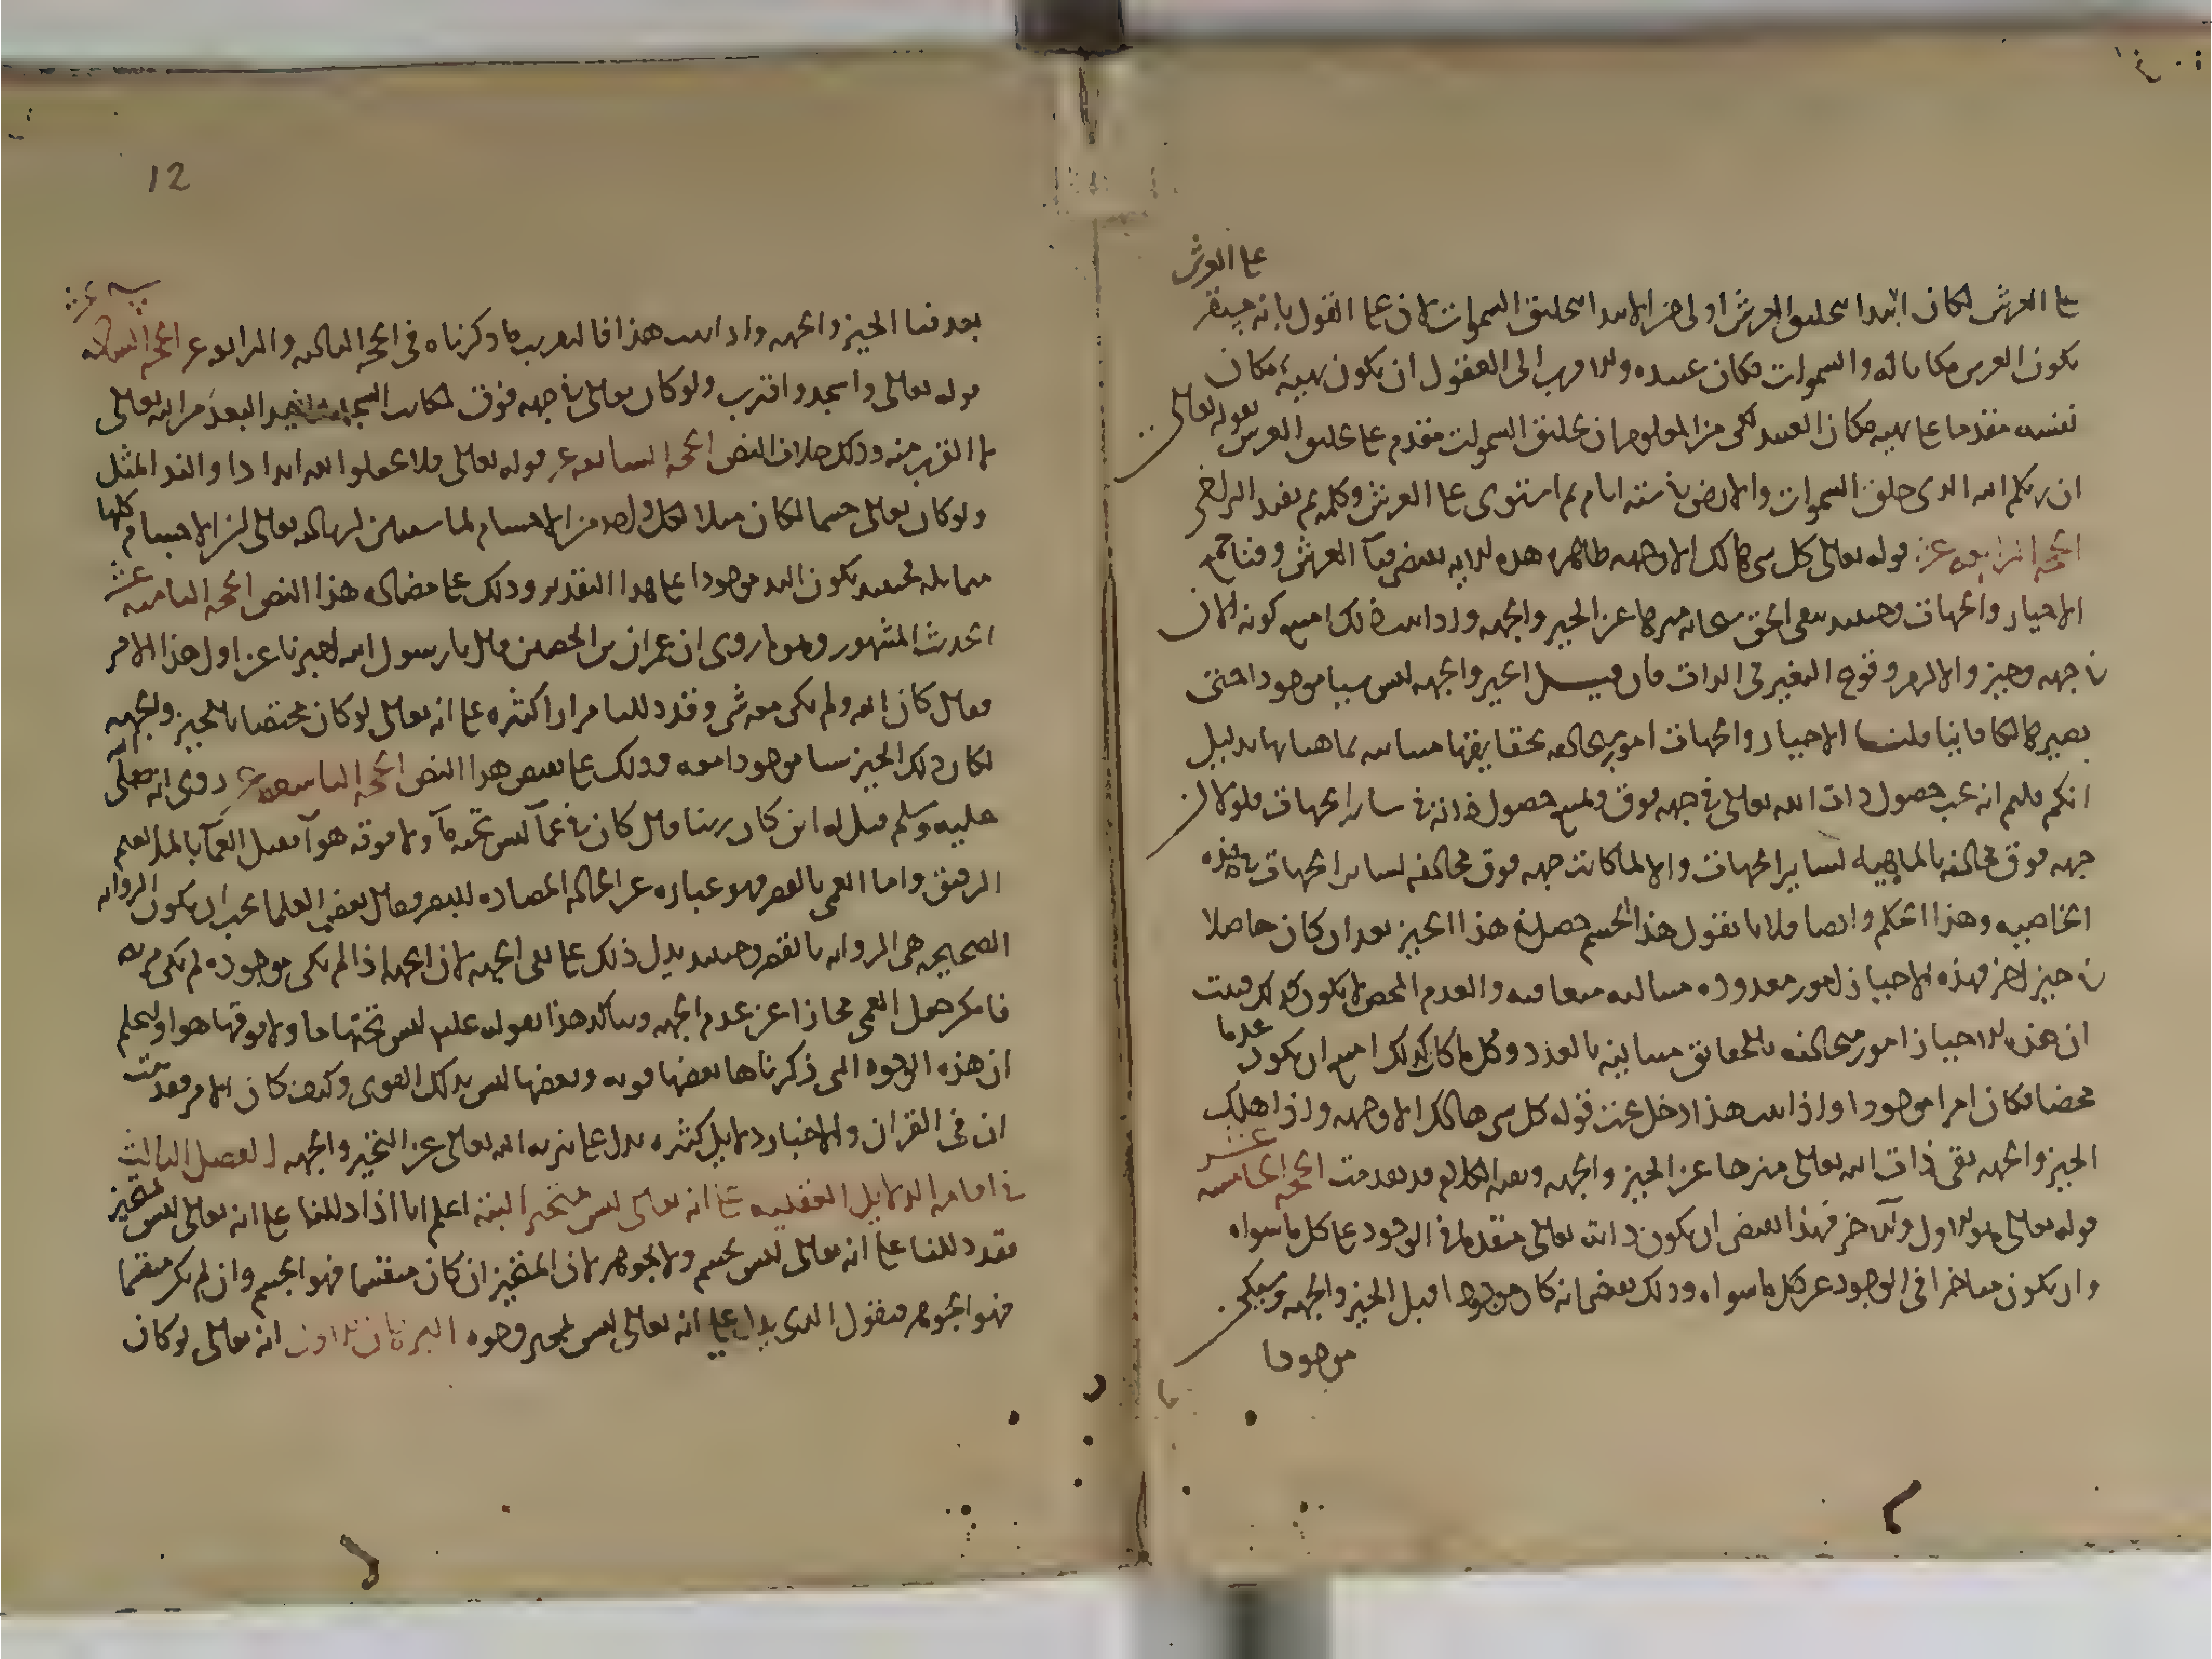 على العرش
على العرش لكان الابتدا بتخليق العرش اولى من الابتدا بتخليق السموات لان على القول بانه مستقر
يكون العرش مكانا له والسموات مكان عبيده والاقرب الى العقول ان يكون تهيئة مكان
نفسه مقدما على تهيئة مكان العبيد لكن من المعلوم ان تخليق السموات مقدم على تخليق العرش لقوله تعالى
ان ربكم الله الذي خلق السموات والارض في ستة ايام ثم استوى على العرش وكلمة ثم تفيد التراخي
الحجة الرابعة عشر قوله تعالى كل شي هالك الا وجهه ظاهر هذه الاية يقتضي فنآ العرش وفنا جميع
الاحياز والجهات وحينيد يبقى الحق سبحانه منزها عن الحيز والجهه واذا ثبت ذلك امتنع كونه الان
في جهه وحيز والا لزم وقوع التغير في الذات فان قيل الحيز والجهه ليس شيا موجودا حتى
يصير هالكا فانيا قلنا الاحياز والجهات امور مخالفه بحقايقها متباينه بماهياتها بدليل
انكم قلتم انه يجب حصول ذات الله تعالى في جهه فوق ويمتنع حصول ذاته في ساير الجهات فلولا ان
جهه فوق مخالفه بالماهيه لساير الجهات والا لما كانت جهه فوق مخالفه لساير الجهات في هذه
الخاصيه وهذا الحكم وايضا فلانا نقول هذا الجسم حصل في هذا الحيز بعد ان كان حاصلا
في حيز اخر فهذه الاحياز امور معدوده متباينه متعاقبه والعدم المحض لا يكون كذلك فثبت
ان هذه الاحياز امور متخالفه بالحقايق متباينه بالعدد وكل ما كان كذلك امتنع ان يكون عدما
محضا فكان امرا موجودا واذا ثبت هذا دخل تحت قوله كل شي هالك الا وجهه واذا هلك
الحيز والجهه بقى ذات الله تعالى منزها عن الحيز والجهه وبقيه الكلام قد تقدمت الحجه الخامسه عشر
قوله تعالى هو الاول والاخر فهذا يقتضي ان يكون ذاته تعالى متقدما في الوجود على كل ما سواه
وان يكون متاخرا في الوجود عن كل ما سواه وذلك يقتضي انه كان موجودا قبل الحيز والجهه ويكون
موجودا
12
بعد فنا الحيز والجهه واذا ثبت هذا فالتقريب ما ذكرناه في الحجه الثالثه والرابعه عشر الحجه السادسه عشر
قوله تعالى واسجد واقترب ولو كان تعالى في جهه فوق لكانت السجده تفيد البعد من الله تعالى
لا القرب منه وذلك خلاف النص الحجه السابعه عشر قوله تعالى فلا تجعلوا لله اندادا والند المثل
ولو كان تعالى جسما لكان مثلا لكل واحد من الاجسام لما سنبين ان شالله تعالى ان الاجسام كلها
متماثله فحينيد يكون الند موجودا على هذا التقدير وذلك على مضاده هذا النص الحجه الثامنه عشر
الحديث المشهور وهو ما روى ان عمران بن الحصين قال يا رسول الله اخبرنا عن اول هذا الامر
فقال كان الله ولم يكن معه شي وقد دللنا مرارا كثيره على انه تعالى لو كان مختصا بالحيز والجهه
لكان ذلك الحيز شيا موجودا معه وذلك على نقيض هذا النص الحجه التاسعه عشر روى انه صلى الله
عليه وسلم قيل له اين كان ربنا قال كان في عمآ ليس تحته مآ ولا فوقه هوآ فقيل العمآ بالمد الغيم
الرقيق واما العمى بالقصر فهو عباره عن الحاله المضاده للبصر وقال بعض العلما يجب ان يكون الروايه
الصحيحه هي الروايه بالقصر وحينيد يدل ذلك على نفي الجهه لان الجهه اذا لم تكن موجوده لم تكن مرئيه
فامكن جعل العمى مجازا عن عدم الجهه ويتاكد هذا بقوله عليه ليس تحتها ما ولا فوقها هوا واعلم
ان هذه الوجوه التي ذكرناها بعضها قويه وبعضها ليس بذلك القوى وكيف كان الامر فقد ثبت
ان في القران والاخبار دلايل كثيره تدل على تنزيه الله تعالى عن التحيز والجهه الفصل الثالث
في اقامه الدلايل العقليه على انه تعالى ليس بمتحيز البته اعلم انا اذا دللنا على انه تعالى ليس بمتحيز
فقد دللنا على انه تعالى ليس بجسم ولا بجوهر لان المتحيز ان كان منقسما فهو الجسم وان لم يكن منقسما
فهو الجوهر فنقول الذي يدل على انه تعالى ليس بمتحيز وجوه البرهان الاول انه تعالى لو كان